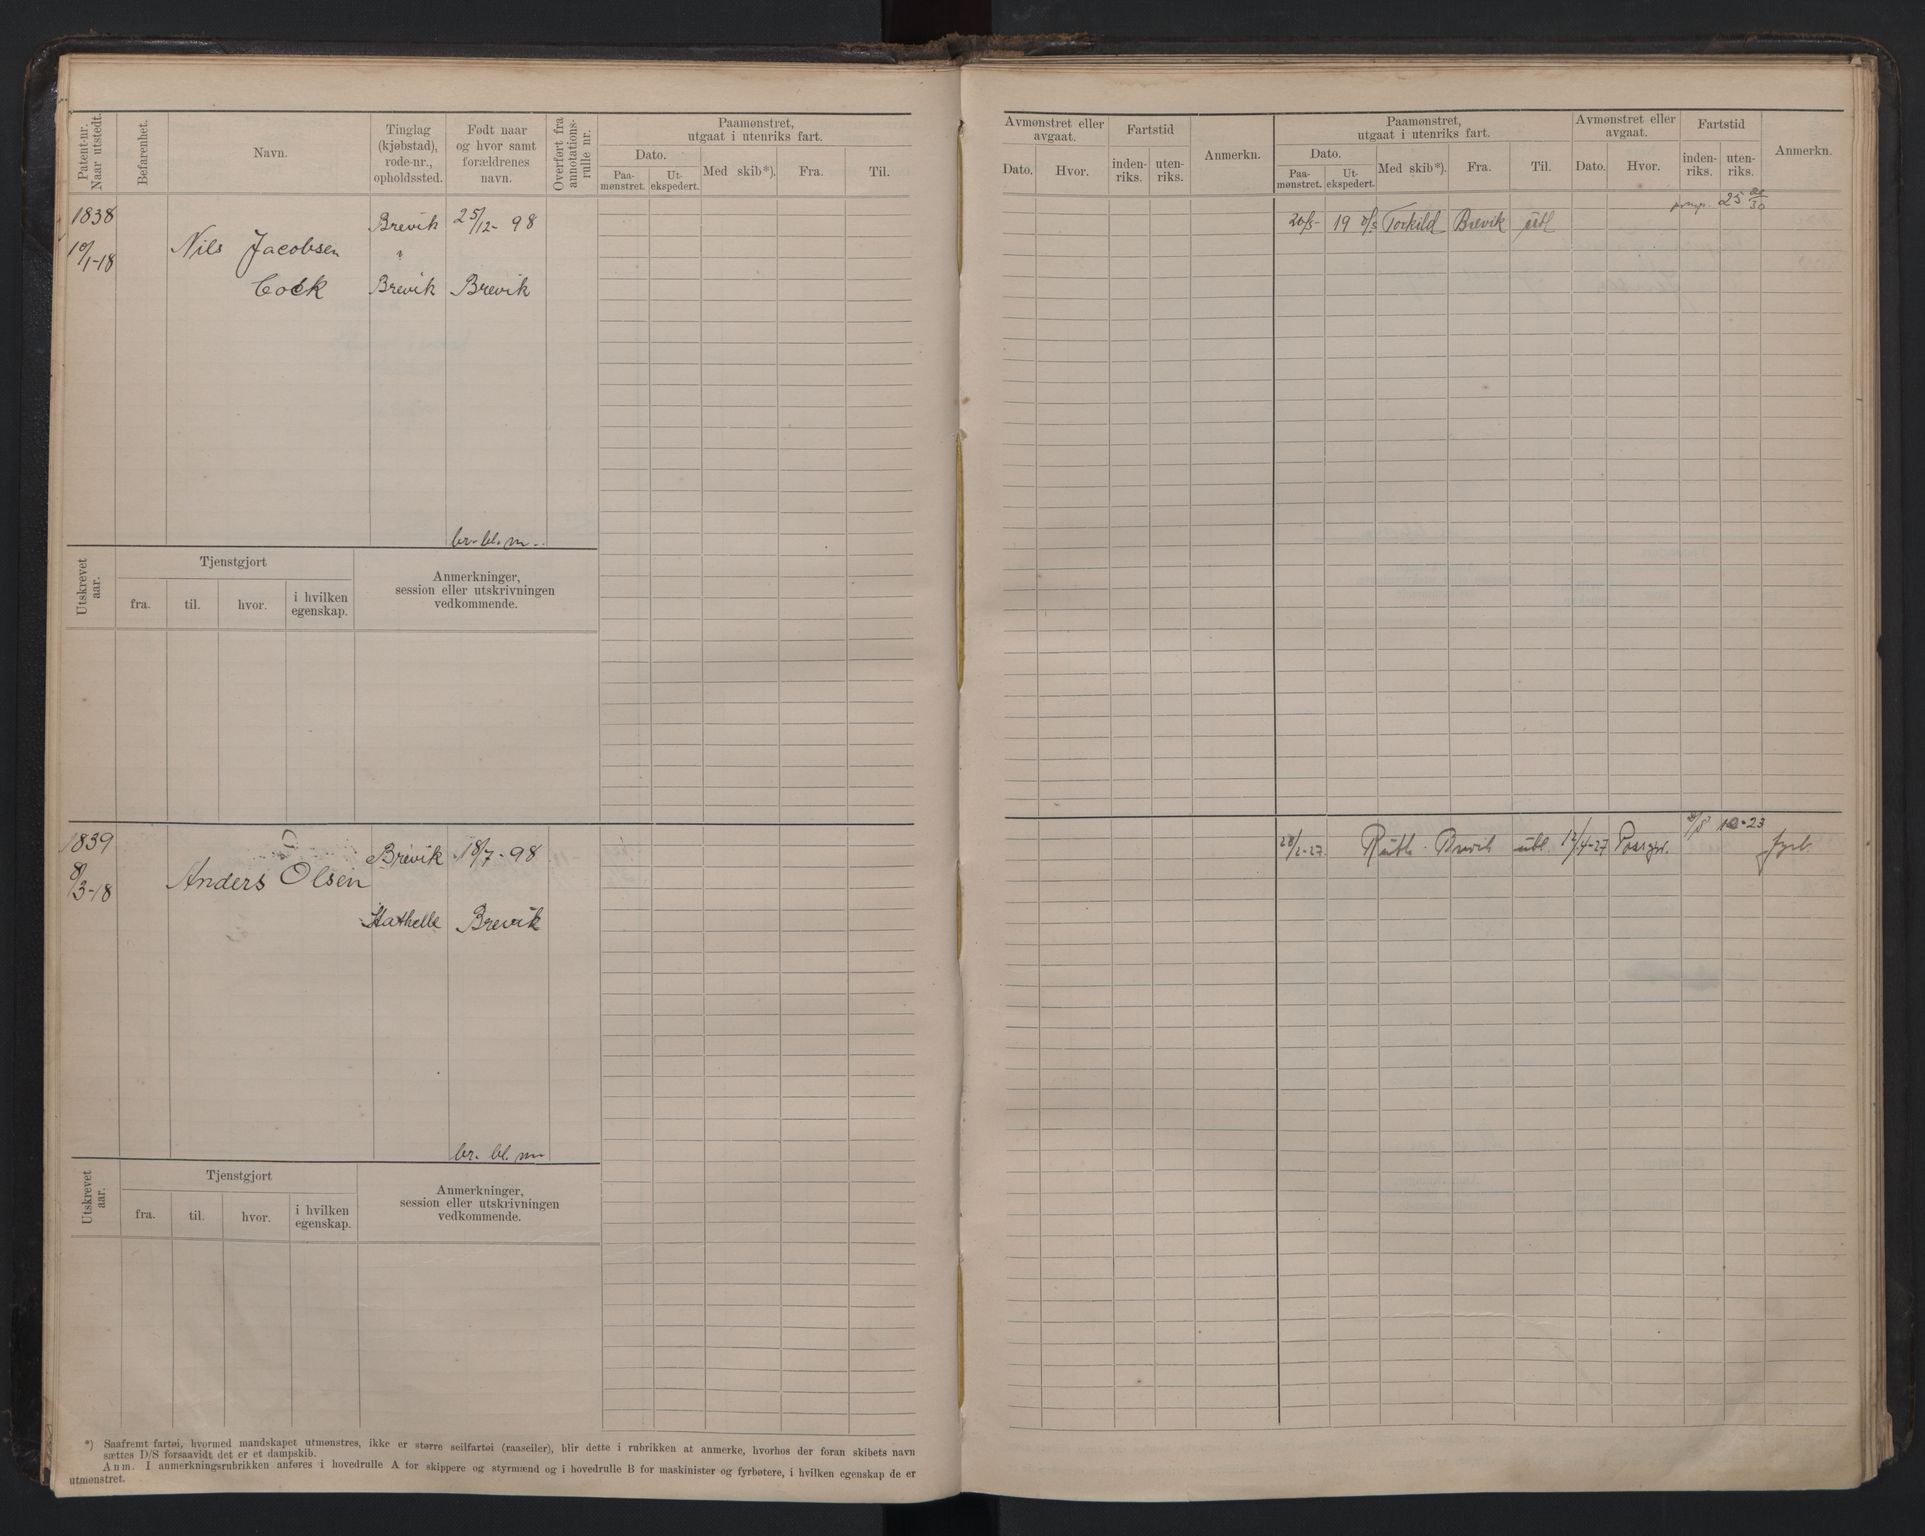 Patent-nr.
Naar utstedt.
Befarenhet.
Navn.
Tinglag
(kjøbstad),
rode-nr.,
opholdssted.
Født naar
og hvor samt
forældrenes
navn.
Overført fra
annotations-
rulle nr.
Paamønstret,
utgaat i utenriks fart.
Dato.
Paa-
mønstret.
Ut-
ekspedert.
Med skib*).
Fra.
Til.
1838
10/1-18
Nils Jacobsen
Cock
Brevik
"
Brevik
25/12-98
Brevik
br. bl. m.
Utskrevet
aar.
Tjenstgjort
fra.
til.
hvor.
i hvilken
egenskap.
Anmerkninger,
session eller utskrivningen
vedkommende.
1839
8/3-18
Anders Olsen
Brevik
Stathelle
18/7-98
Brevik
br. bl. m
Utskrevet
aar.
Tjenstgjort
fra.
til.
hvor.
i hvilken
egenskap.
Anmerkninger,
session eller utskrivningen
vedkommende.
*) Saafremt fartøi, hvormed mandskapet utmønstres, ikke er større seilfartøi (raaseiler), blir dette i rubrikken at anmerke, hvorhos der foran skibets navn
sættes D/S forsaavidt det er et dampskib.
Anm. I anmerkningsrubrikken anføres i hovedrulle A for skippere og styrmænd og i hovedrulle B for maskinister og fyrbøtere, i hvilken egenskap de er
utmønstret.
Avmønstret eller
avgaat.
Dato.
Hvor.
Fartstid
inden-
riks.
uten-
riks.
Anmerkn.
Paamønstret,
utgaat i utenriks fart.
Dato.
Paa-
mønstret.
Ut-
ekspedert.
Med skib*).
Fra.
Til.
Avmønstret eller
avgaat.
Dato.
Hvor.
Fartstid
inden-
riks.
uten-
riks.
Anmerkn.
25 30
20/5- 19 Torkild Brevik utl
28/2-27. Ruth Brevik utl. 12/4-27 Porsgr. 23 fyrb.